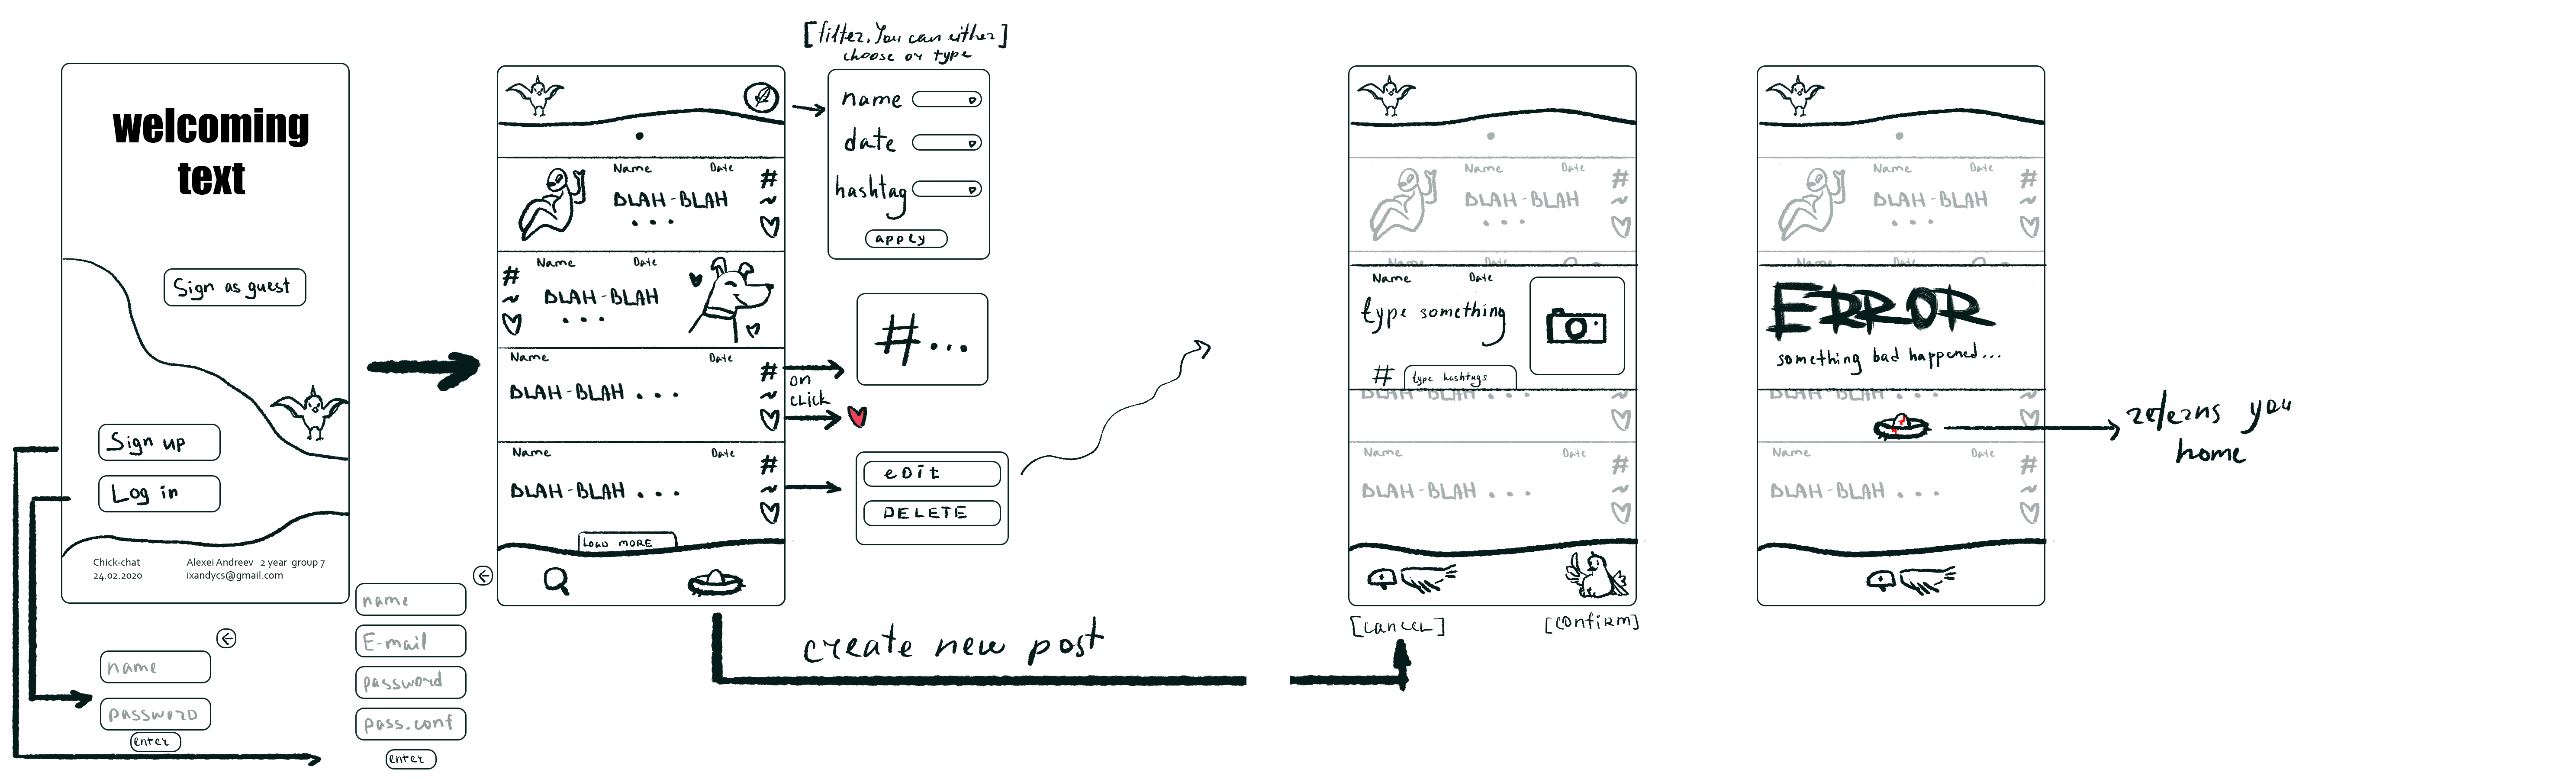 welcoming
text
Sign as guest
Sign up
Log in
Chick-chat
24.02.2020
Alexei Andreev 2 year group 7
ixandycs@gmail.com
name
password
enter
name
E-mail
password
pass.conf
enter
Name Date
#
BLAH-BLAH
...
Name Date
#
BLAH-BLAH
...
Name Date
#
BLAH-BLAH ...
Name Date
#
BLAH-BLAH ...
LOAD MORE
[filter. You can either]
choose or type
name
date
hashtag
apply
#...
on
click
eDiT
DELETE
create new post
Name Date
#
BLAH-BLAH
...
Name Date
Name Date
type something
# type hashtags
BLAH-BLAH ...
Name Date
#
BLAH-BLAH ...
[cancel] [confirm]
Name Date
#
BLAH-BLAH
...
Name Date
ERROR
something bad happened...
BLAH-BLAH ...
Name Date
#
BLAH-BLAH ...
reterns you
home